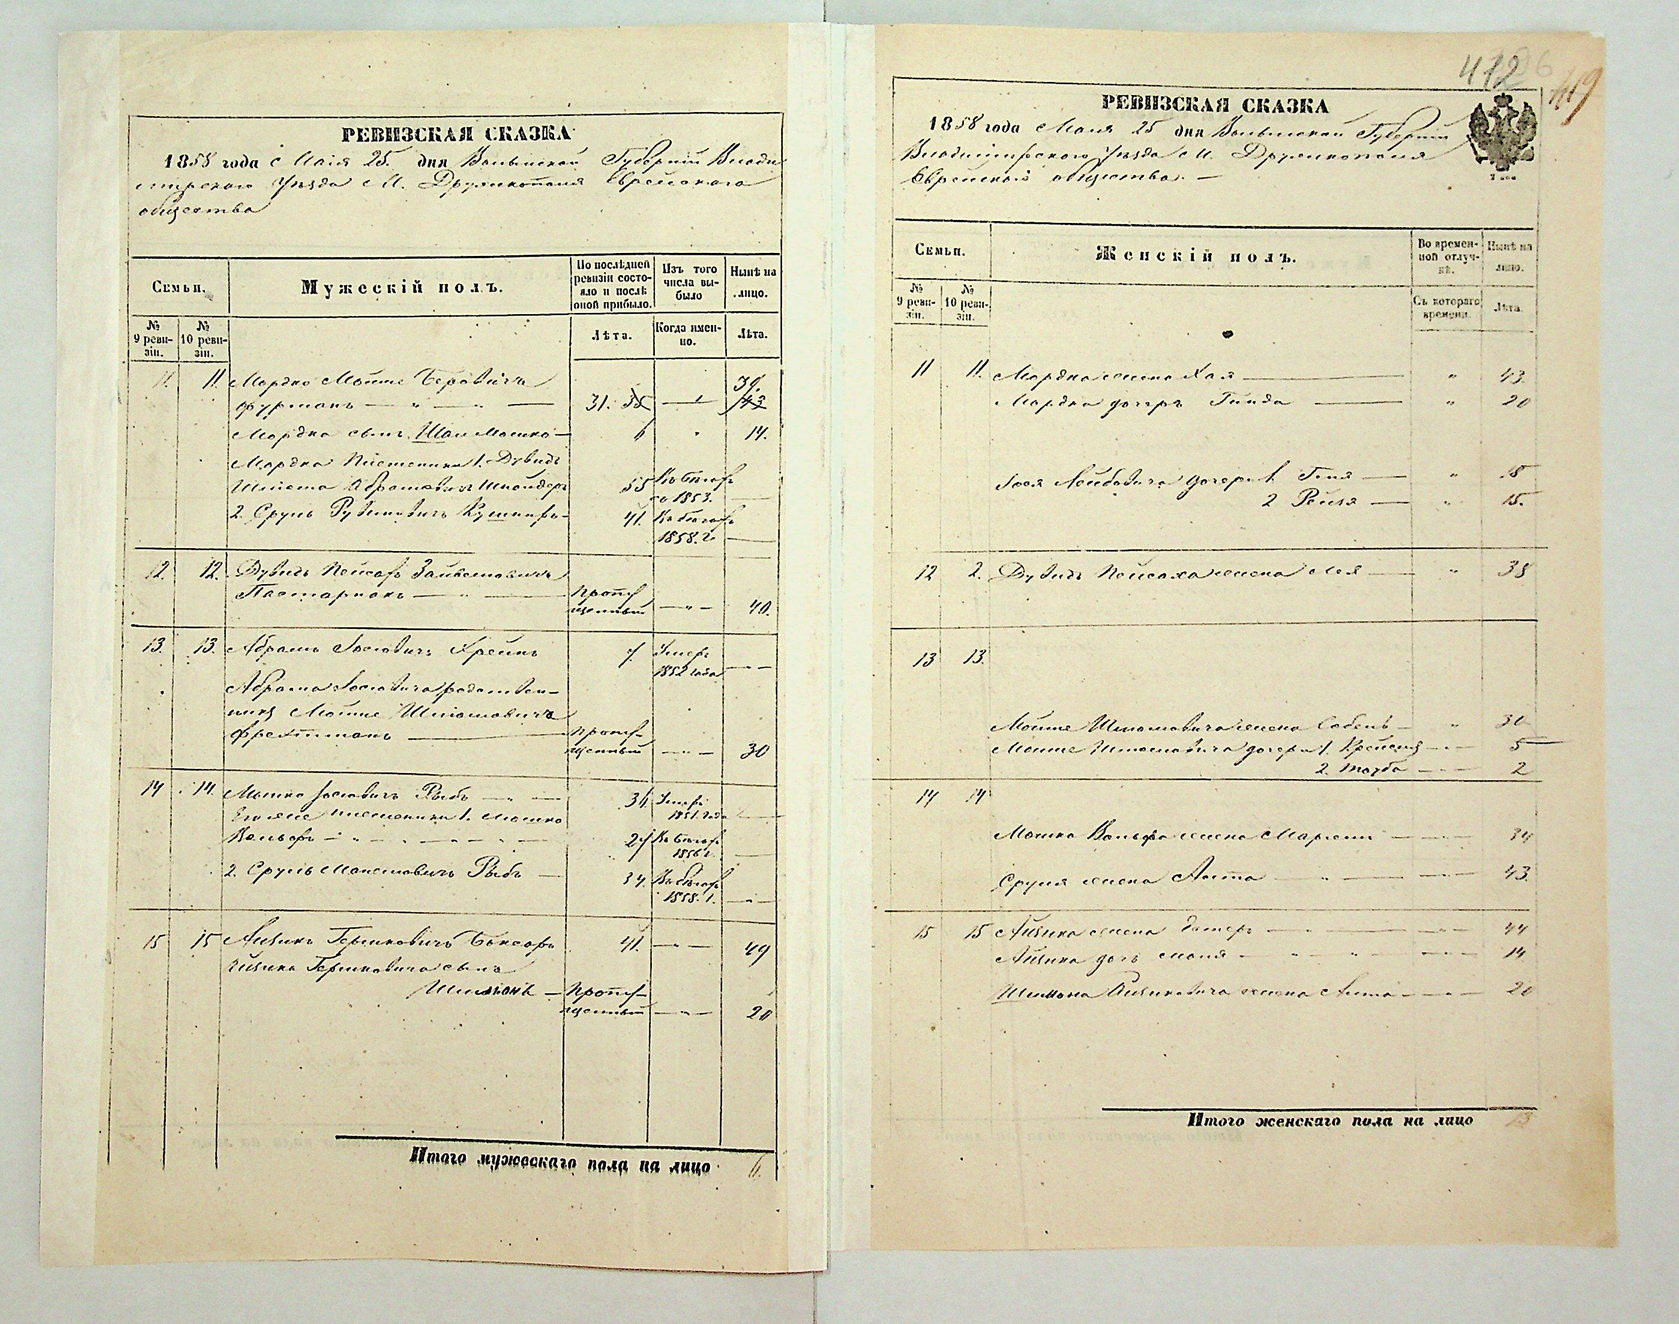 РЕВИЗСКАЯ СКАЗКА
1858 года Маія 25 дня Волынской Губерніи Влади
мирскаго Уѣзда М. Дружкополя Еврейскаго
общества
Семьи.
Мужескій полъ.
По послѣдней ревизіи состояло и послѣ оной прибыло.
Изъ того числа выбыло
Нынѣ на лицо.
№ 9 ревизіи.
№ 10 ревизіи.
Лѣта.
Когда именно.
Лѣта.
11. 11. Мордко Мошко Беровичъ 39.
Фурманъ 31. 35 43
Мордка сынъ Шая Мошко 6 14.
Мордка племенники 1. Дувидъ
Абрамовичъ Шнайдеръ 55 въ бѣгахъ
съ 1853.
2. Сруль Рувиновичъ Кушниръ 41. въ бѣгахъ
1858. г.
12. 12. Дувидъ Пейсахъ
Пастернакъ пропу-
щенный 40.
13. 13. Абрамъ Іосіовичъ Крейнъ 7. Умеръ
1852 года
Абрама Іосіовича родствен-
никъ Мошко Шліомовичъ
пропу-
щенный 30
14 14. Мошко Іосіовичъ Рыбъ 36 Умеръ
1851. года
Его же племенники 1. Мошко
Вольфъ 27 въ бѣгахъ
1856 г.
2. Сруль Рыбъ 34. въ бѣгахъ
1858. г.
15 15 Айзикъ Гершковичъ 41. 49
Айзика Гершковича сынъ
Шимонъ пропу-
щенный 20
Итого мужескаго пола на лицо 6.
412
419
РЕВИЗСКАЯ СКАЗКА
1858 года Маія 25 дня Волынской Губерніи
Владимирскаго Уѣзда М. Дружкополя
Еврейскаго общества.
Семьи.
Женскій полъ.
Во временной отлучкѣ.
Нынѣ на лицо.
№ 9 ревизіи.
№ 10 ревизіи.
Съ котораго времени.
Лѣта.
11 11. Мордка жена Хая 43.
Мордка дочерь Гинда 20
Лейбовича дочери 1. Геня 18
2 Рейзя 15.
12 2. Дувидъ Пейсаха жена Лея 38
13 13.
Мошко Шліомовича жена 30
Мошко Шліомовича дочери 1. 5
2. Тауба 2
14 14
Мошка Вольфа жена 34
Сруля жена 43.
15 15 Айзика жена Эстеръ 44
Айзика дочь 14
Шимона Айзиковича жена 20
Итого женскаго пола на лицо 13